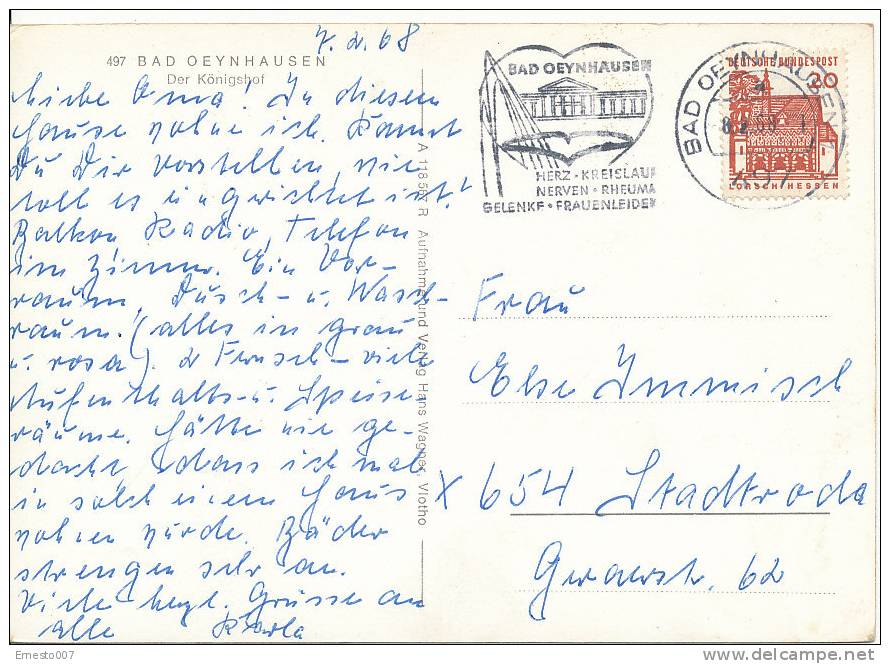 7.2.68
497 BAD OEYNHAUSEN
Der Königshof
Liebe Oma! In diesem
Hause wohne ich. Kannst
Du Dir vorstellen, wie
toll es eingerichtet ist!
Balkon, Radio, Telefon
im Zimmer. Ein Vor-
raum, Dusch- u. Wasch-
raum. (alles in grau
u. rosa). 2 Fernseh - viele
Aufenthalts- u. Speise
räume. Hätte nie ge-
dacht, dass ich mal
in solch einem Haus
wohnen würde. Bäder
strengen sehr an.
Viele herzl. Grüsse an
alle Karla
A 118 567 R Aufnahme und Verlag Hans Wagner, Vlotho
BAD OEYNHAUSEN
HERZ · KREISLAUF
NERVEN · RHEUMA
GELENKE · FRAUENLEIDEN
BAD OEYNHAUSEN 1
497
DEUTSCHE BUNDESPOST
20
LORSCH/HESSEN
Frau
Else Immisch
X 654 Stadtroda
Geraerstr. 62
Ernesto007
delcampe.net